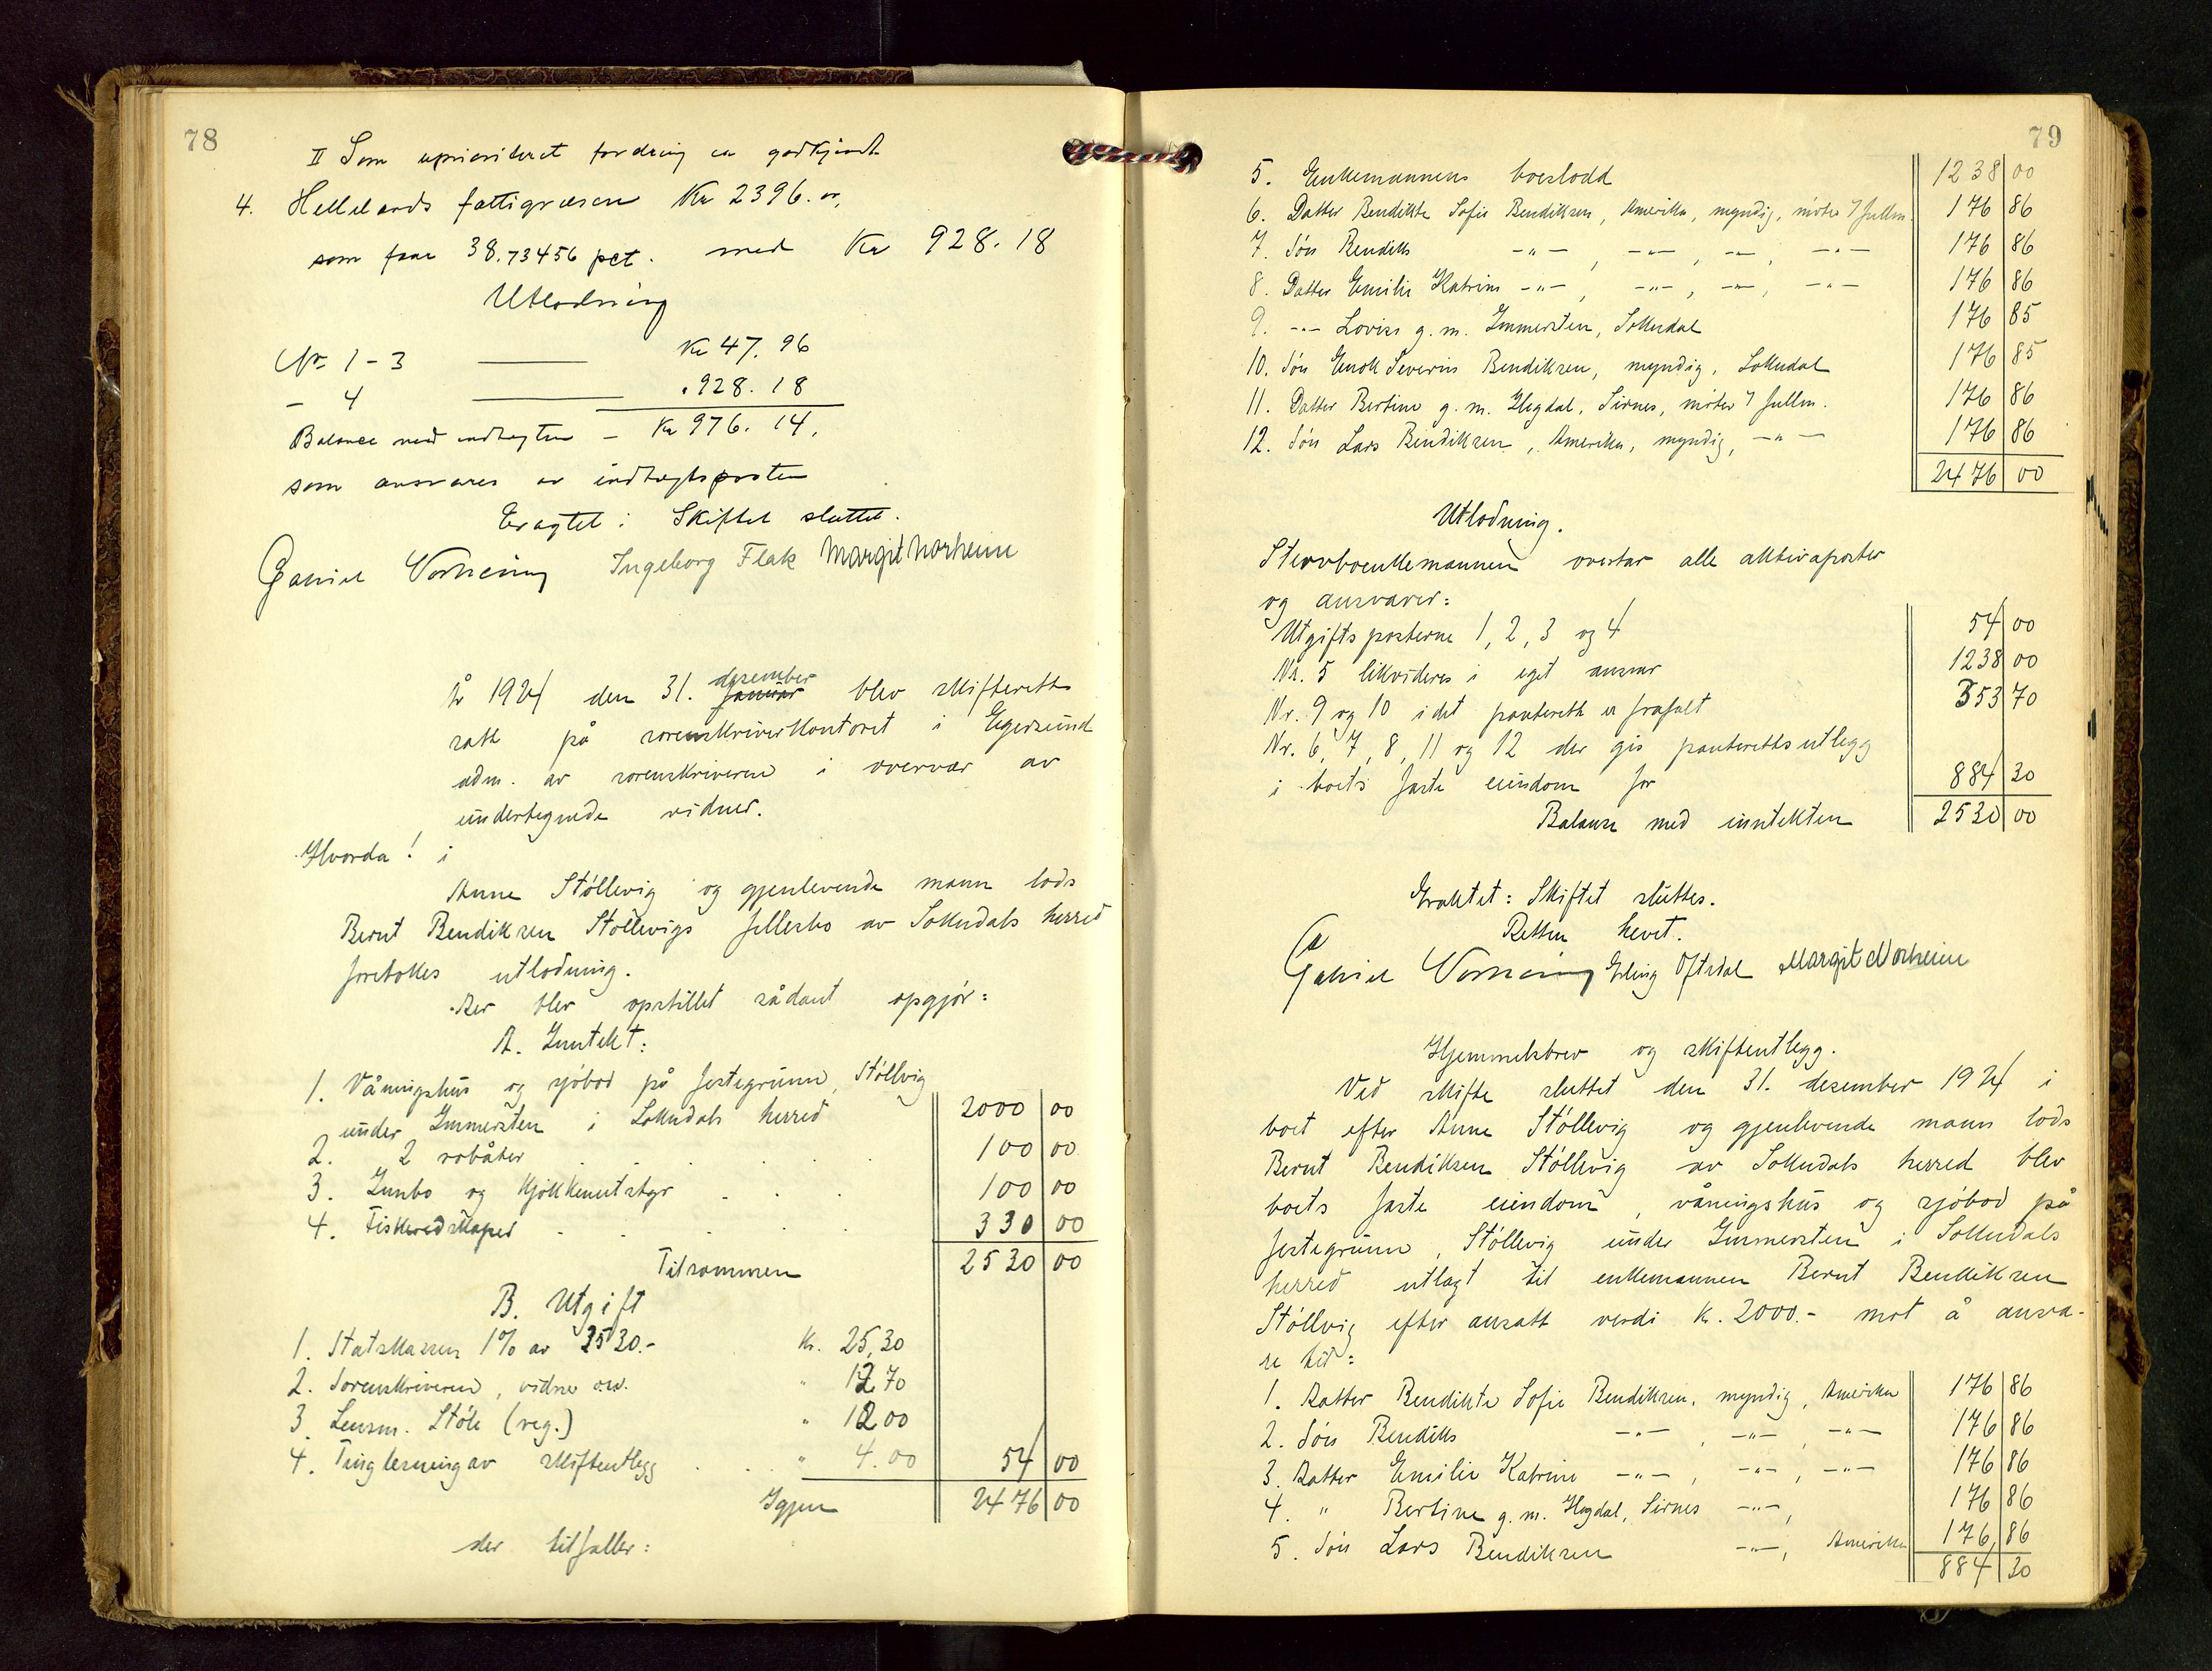 78
II Som uprioriteret fordring er godkjendt
4. Hellelands fattigvæsen Kr 2396. 00,
som faar 38.73456 pct. med Kr 928.18
Utlodning
Nr 1-3 — Kr 47.96
- 4 — " 928.18
Balance med indtægten - Kr 976.14.
som ansvares av indtægtsposten
Eragtet: Skiftet sluttet.
Gabriel Ingeborg Flak Margit Norheim
År 1924 den 31. januar desember blev skifterett
satt på sorenskriverkontoret i Egersund
adm. av sorenskriveren i overvær av
undertegnede vidner.
Hvorda! i
Anne Støllevig og gjenlevende mann lods
Bernt Bendiksen Støllevigs fellesbo av Sokndals herred
foretokes utlodning.
Der blev opstillet sådant opgjør:
A. Inntekt:
1. Våningshus og sjøbod på festegrunn, Støllvig
under Immersten i Sokndals herred 2000 00
2. 2 robåter . . . . 100 00
3. Innbo og kjøkkenutstyr . . . 100 00
4. Fiskeredskaper . . . . 330 00
Tilsammen 2530 00
B. Utgift
1. Statskassen 1% av 2530.- Kr. 25,30
2. Sorenskriveren, vidner osv. " 12.70
3. Lensm. Støle (reg.) " 12.00
4. Tinglesning av skifteutlegg . . . " 4.00 54 00
Igjen 2476 00
der tilfaller:
79
5. Enkemannens boeslodd 1238 00
6. Datter Bendikte Sofie Bendiksen, Amerika, myndig, møter v/ fullm. 176 86
7. Søn Bendiks -"- , -"- , -"- , -"- 176 86
8. Datter Emilie Katrine -"- , -"- , -"- , -"- 176 86
9. -"- Lovise g.m. Immersten, Sokndal 176 85
10. Søn Enok Severin Bendiksen, myndig, Sokndal 176 85
11. Datter Bertine g.m. Hegdal, Sirnes, møter v/ fullm. 176 86
12. Søn Lars Bendiksen, Amerika, myndig, -"- 176 86
2476 00
Utlodning.
Stervboenkemannen overtar alle aktivaposter
og ansvarer:
Utgiftsposterne 1, 2, 3 og 4 54 00
Nr. 5 likvideres i eget ansvar 1238 00
Nr. 9 og 10 idet panterett er frafalt 353 70
Nr. 6, 7, 8, 11 og 12 der gis panterettsutlegg
i boets faste eiendom for 884 30
Balanse med inntekten 2530 00
Eraktet: Skiftet sluttes.
Retten hevet.
Gabriel Erling Oftedal Margit Norheim
Hjemmelsbrev og skifteutlegg.
Ved skifte sluttet den 31. desember 1924 i
boet efter Anne Støllevig og gjenlevende mann lods
Bernt Bendiksen Støllevig av Sokndals herred blev
boets faste eiendom, våningshus og sjøbod på
festegrunn, Støllevig under Immersten i Sokndals
herred utlagt til enkemannen Bernt Bendiksen
Støllvig efter ansatt verdi kr. 2000.- mot å ansva-
re til:
1. Datter Bendikte Sofie Bendiksen, myndig, Amerika 176 86
2. Søn Bendiks -"- , -"- , -"- 176 86
3. Datter Emilie Katrine -"- , -"- , -"- 176 86
4. " Bertine g.m. Hegdal, Sirnes -"- , 176 86
5. Søn Lars Bendiksen -"- , Amerika 176 86
884 30